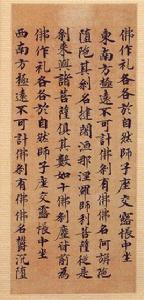 佛作礼各各於自然師子座交露帳中坐
東南方極遠不可計佛剎有佛佛名阿旃陁
陁陁其剎名揵闍洹那漫羅師利菩薩從是
剎來與諸菩薩俱其數如十佛剎塵皆前為
佛作礼各各於自然師子座交露帳中坐
西南方極遠不可計佛剎有佛佛名欝沉陁